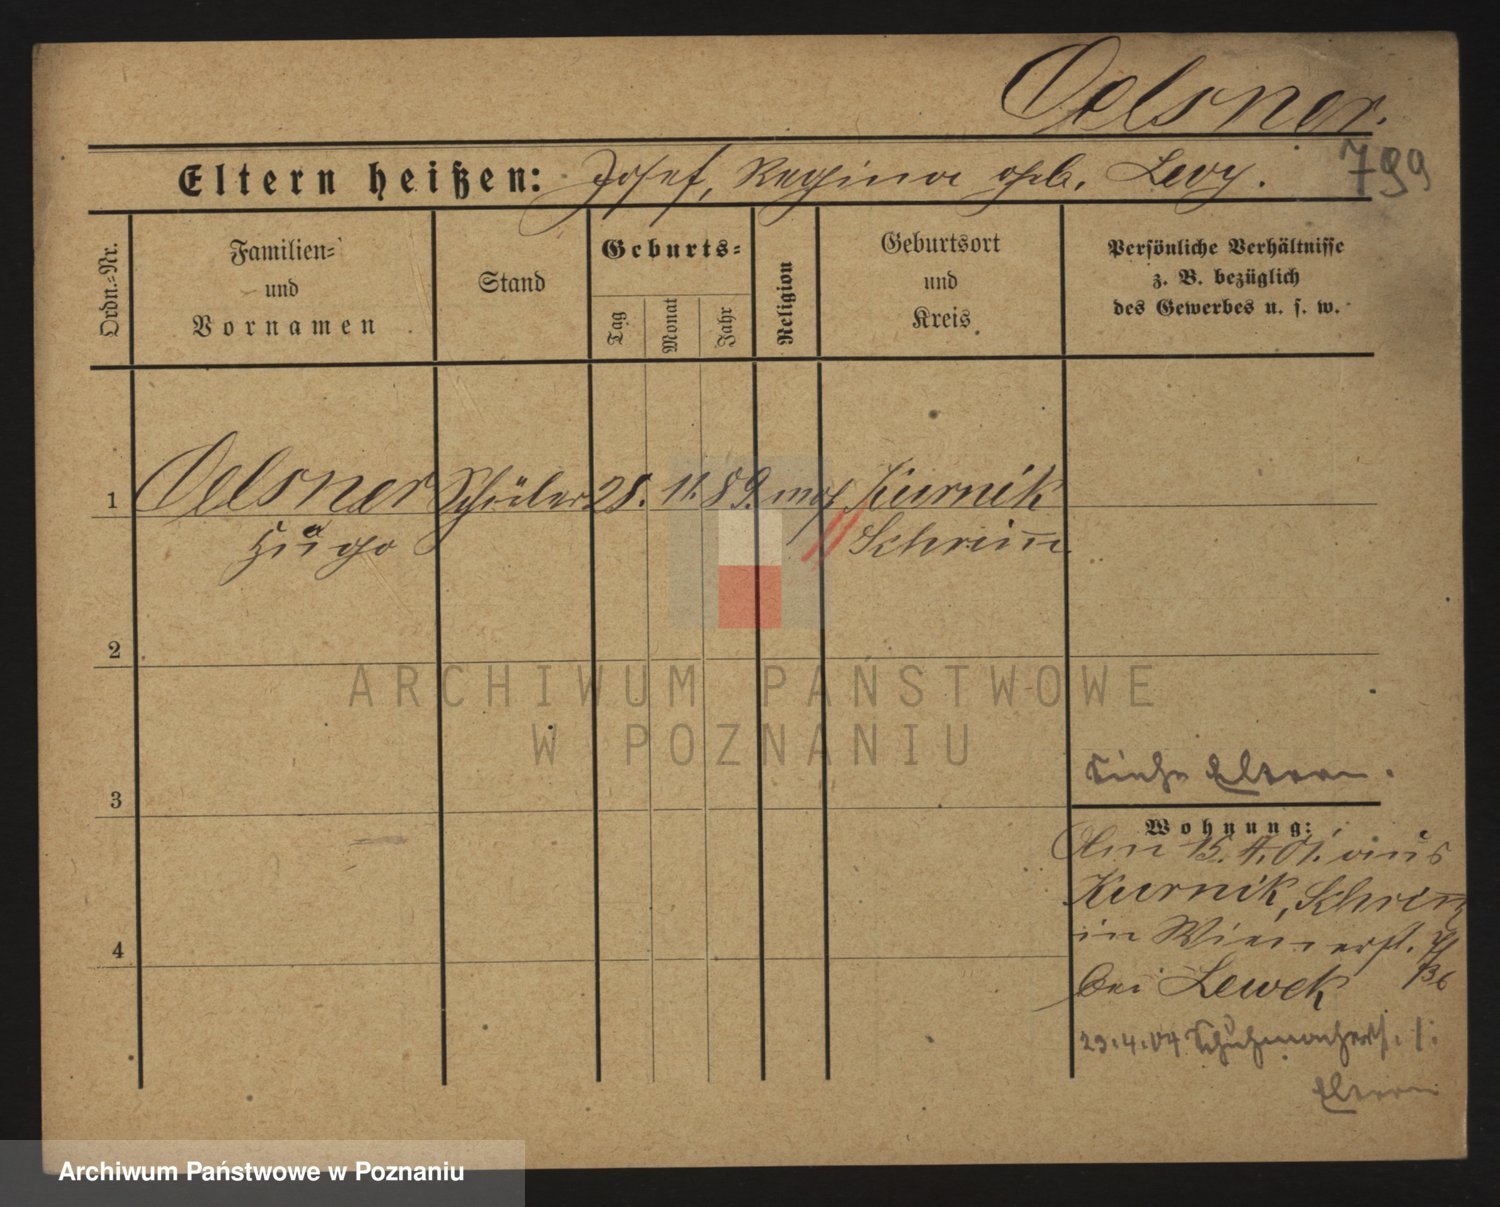 Oelsner.
799
Eltern heißen: Josef, Regina geb. Levy.
Ordn.-Nr.
Familien-
und
Vornamen
Stand
Geburts-
Tag
Monat
Jahr
Religion
Geburtsort
und
Kreis
Persönliche Verhältnisse
z. B. bezüglich
des Gewerbes u. s. w.
1 Oelsner Schüler 28. 11. 89. mos Kurnik
Hugo Schrim̄
2
ARCHIWUM PAŃSTWOWE
W POZNANIU
Siehe Eltern.
3
Wohnung:
Am 15. 4. 01. aus
Kurnik, Schrim̄
in Wienerst.
4
bei Lewek
23.4.04 Schuhmacherst.
Eltern
Archiwum Państwowe w Poznaniu